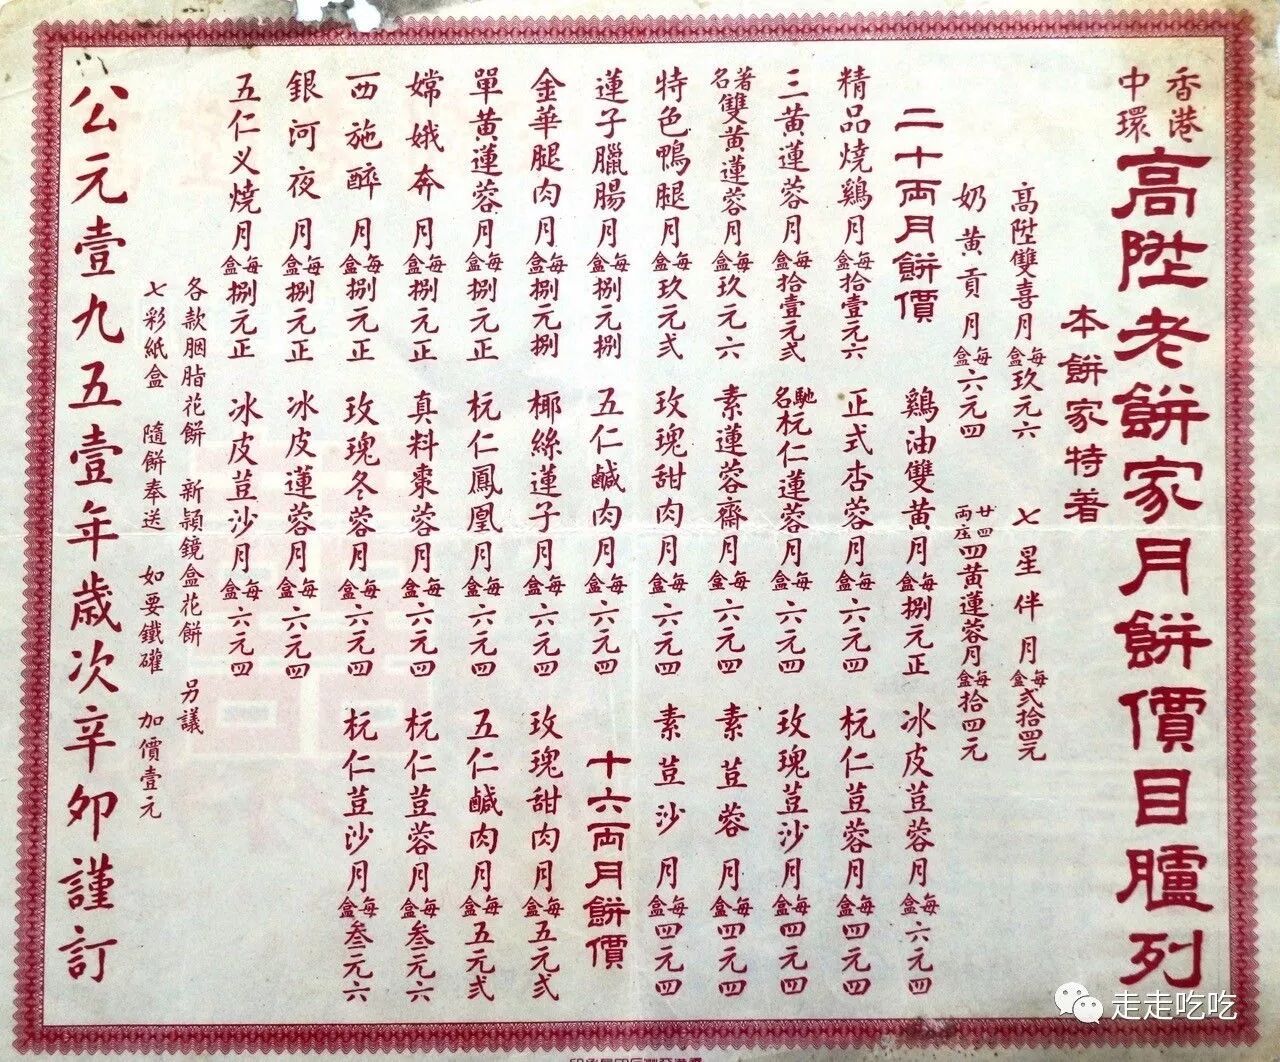 香港中環
高陞老餅家月餅價目臚列
本餅家特著
高陞雙喜月每盒玖元六 七星伴月每盒弍拾四元
奶黃貢月每盒六元四 廿四両庄四黃蓮蓉月每盒拾四元
二十両月餅價 鷄油雙黃月每盒捌元正 冰皮荳蓉月每盒六元四
精品燒鷄月每盒拾壹元六 正式杏蓉月每盒六元四 杬仁荳蓉月每盒四元四
三黃蓮蓉月每盒拾壹元弍 馳名杬仁蓮蓉月每盒六元四 玫瑰荳沙月每盒四元四
著名雙黃蓮蓉月每盒玖元六 素蓮蓉齋月每盒六元四 素荳蓉月每盒四元四
特色鴨腿月每盒玖元弍 玫瑰甜肉月每盒六元四 素荳沙月每盒四元四
蓮子臘腸月每盒捌元捌 五仁鹹肉月每盒六元四 十六両月餅價
金華腿肉月每盒捌元捌 椰絲蓮子月每盒六元四 玫瑰甜肉月每盒五元弍
單黃蓮蓉月每盒捌元正 杬仁鳳凰月每盒六元四 五仁鹹肉月每盒五元弍
嫦娥奔月每盒捌元正 真料棗蓉月每盒六元四 杬仁荳蓉月每盒叁元六
西施醉月每盒捌元正 玫瑰冬蓉月每盒六元四 杬仁荳沙月每盒叁元六
銀河夜月每盒捌元正 冰皮蓮蓉月每盒六元四
五仁义燒月每盒捌元正 冰皮荳沙月每盒六元四
各款胭脂花餅 新穎鏡盒花餅 另議
七彩紙盒 隨餅奉送 如要鐵罐 加價壹元
公元壹九五壹年歲次辛卯謹訂
走走吃吃